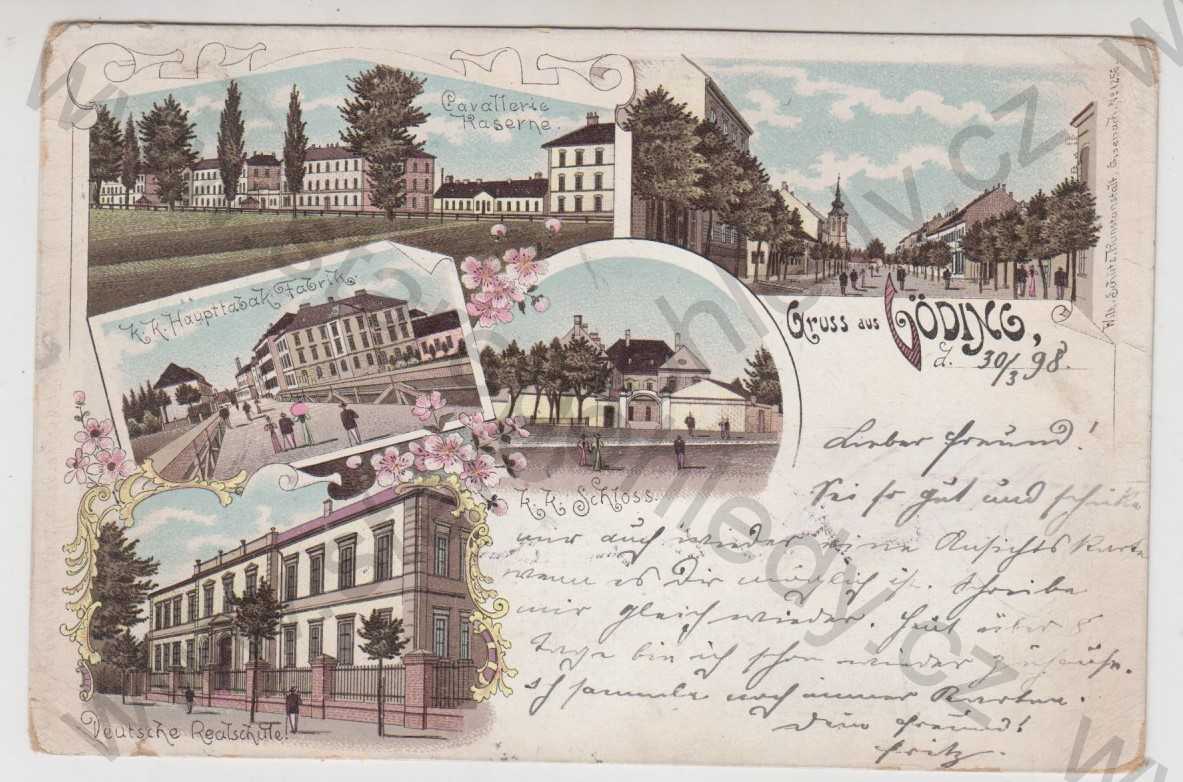 Cavallerie
Kaserne.
K. K. Haupttabak Fabrik.
Gruss aus GÖDING,
d. 30/3 98.
K. K. Schloss.
Deutsche Realschule!
Lieber Freund!
Sei so gut und schicke
mir auch wieder eine Ansichtskarte
wenn es Dir möglich ist. Schreibe
mir gleich wieder. Heut über 8
Tage bin ich schon wieder zuhause.
Ich sammle noch immer Karten.
Dein Freund
Fritz.